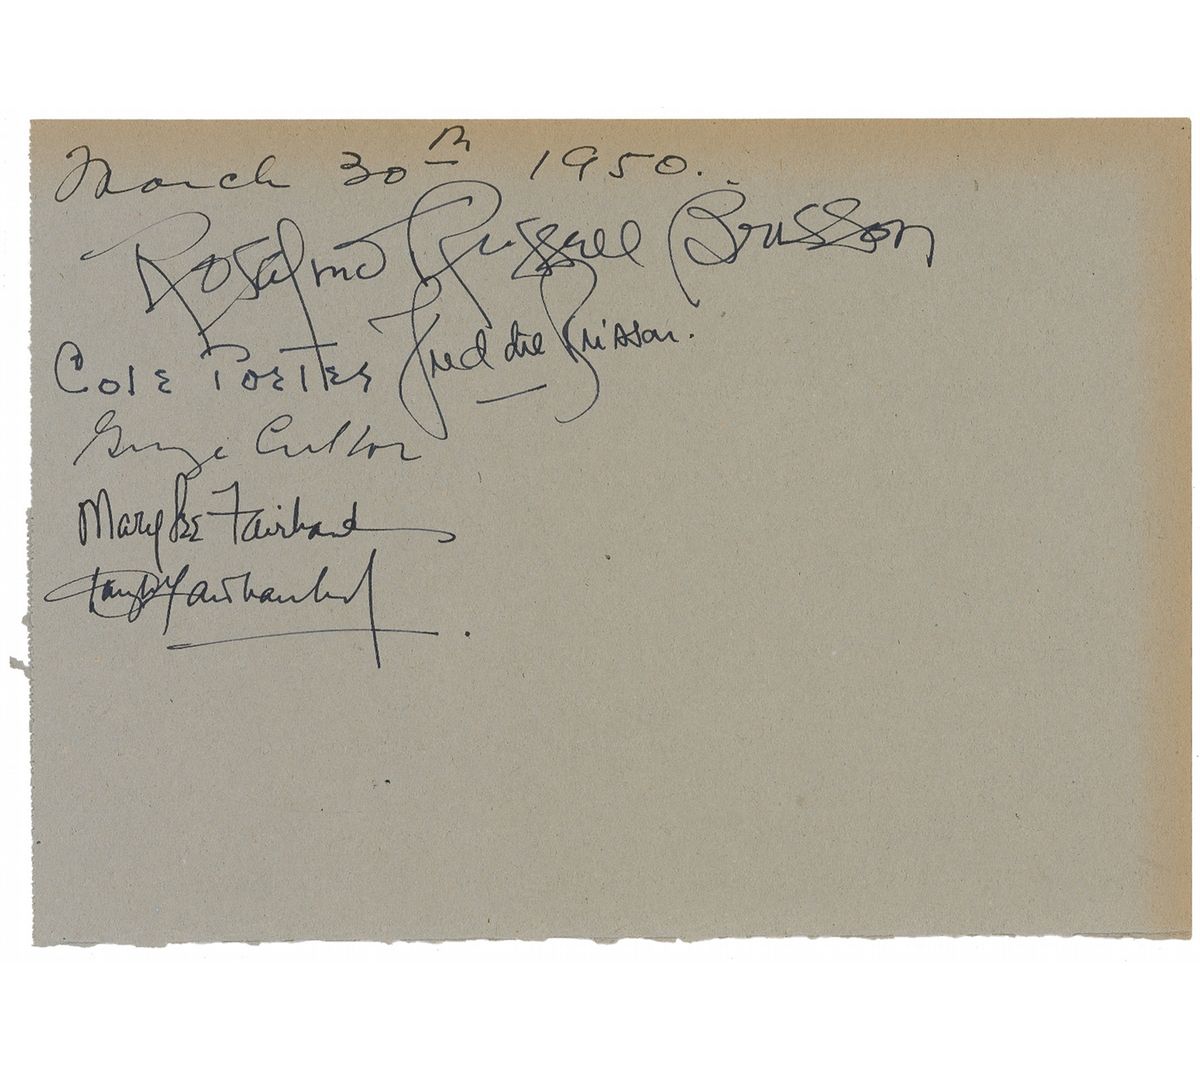 March 30th 1950.
Rosalind Russell Brisson
Cole Porter Freddie Brisson.
George Cukor
Mary Lee Fairbanks
Douglas Fairbanks